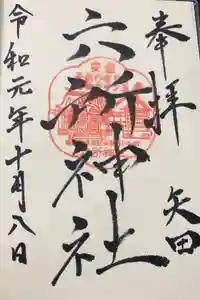 奉拝
矢田
六所神社
令和元年十月八日